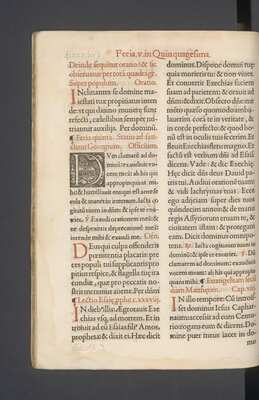 Feria.v.in Quinquagesima.
Deinde sequitur oratio: & sic
obseruatur per totā quadrage.
Super populum. Oratio.
INclinantes se domine ma-
iestati tuæ propitiatus inten-
de: vt qui diuino munere sunt
refecti, cælestibus semper nu-
triantur auxilijs. Per dominū.
Feria quinta. Statio ad san-
ctum Georgium. Officium.
DVm clamarē ad do-
minū: exaudiuit vo-
cem meā: ab his qui
appropinquāt mi-
hi: & humiliauit eos: qui est ante sæ-
cula & manet in æternum. Iacta co-
gitatū tuum in dño: & ipse te enu-
triet. Exaudi orationem meā: & ne
despexeris deprecationē meā:
intende mihi & exaudi me. Oño.
DEus qui culpa offenderis
pœnitentia placaris: pre-
ces populi tui supplicantis pro-
pitius respice, & flagella tuæ ira-
cundiæ, quæ pro peccatis no-
stris meremur auerte. Per dñm
Lectio Esaiæ pphe. c. xxxviij.
IN dieb9 illis: Ægrotauit Eze-
chias vsq; ad mortem. Et in-
troiuit ad eū Esaias fili9 Amos
propheta: & dixit ei. Hæc dicit
dominus. Dispone domui tuæ:
quia morieris tu: & non viues.
Et conuertit Ezechias faciem
suam ad parietem: & orauit ad
dñm: & dixit. Obsecro dñe: me-
mēto quæso quomodo ambu-
lauerim coram te in veritate: &
in corde perfecto: & quod bo-
nū est in oculis tuis fecerim. Et
fleuit Ezechias fletu magno. Et
factū est verbum dñi ad Esaiā
dicens. Vade: & dic Ezechię.
Hęc dicit dñs deus Dauid pa-
tris tui. Audiui orationē tuam:
& vidi lachrymas tuas: Ecce
ego adijciam super dies tuos
quindecim annos: & de manu
regis Assyriorum eruam te, &
ciuitatem istam: & protegam
eam. Dicit dominus omnipo-
tens. Iacta cogitatum tuum in
domino: & ipse te enutriet.
Dum clamarē ad dominū exaudiuit
vocem meam: ab his qui appropin-
quant mihi. Euangelium secun-
dum Matthæum. Cap. viij.
IN illo tempore: Cū introis-
set dominus Iesus Caphar-
naum: accessit ad eum Centu-
rio: rogans eum & dicens. Do-
mine puer meus iacet in do-
mo